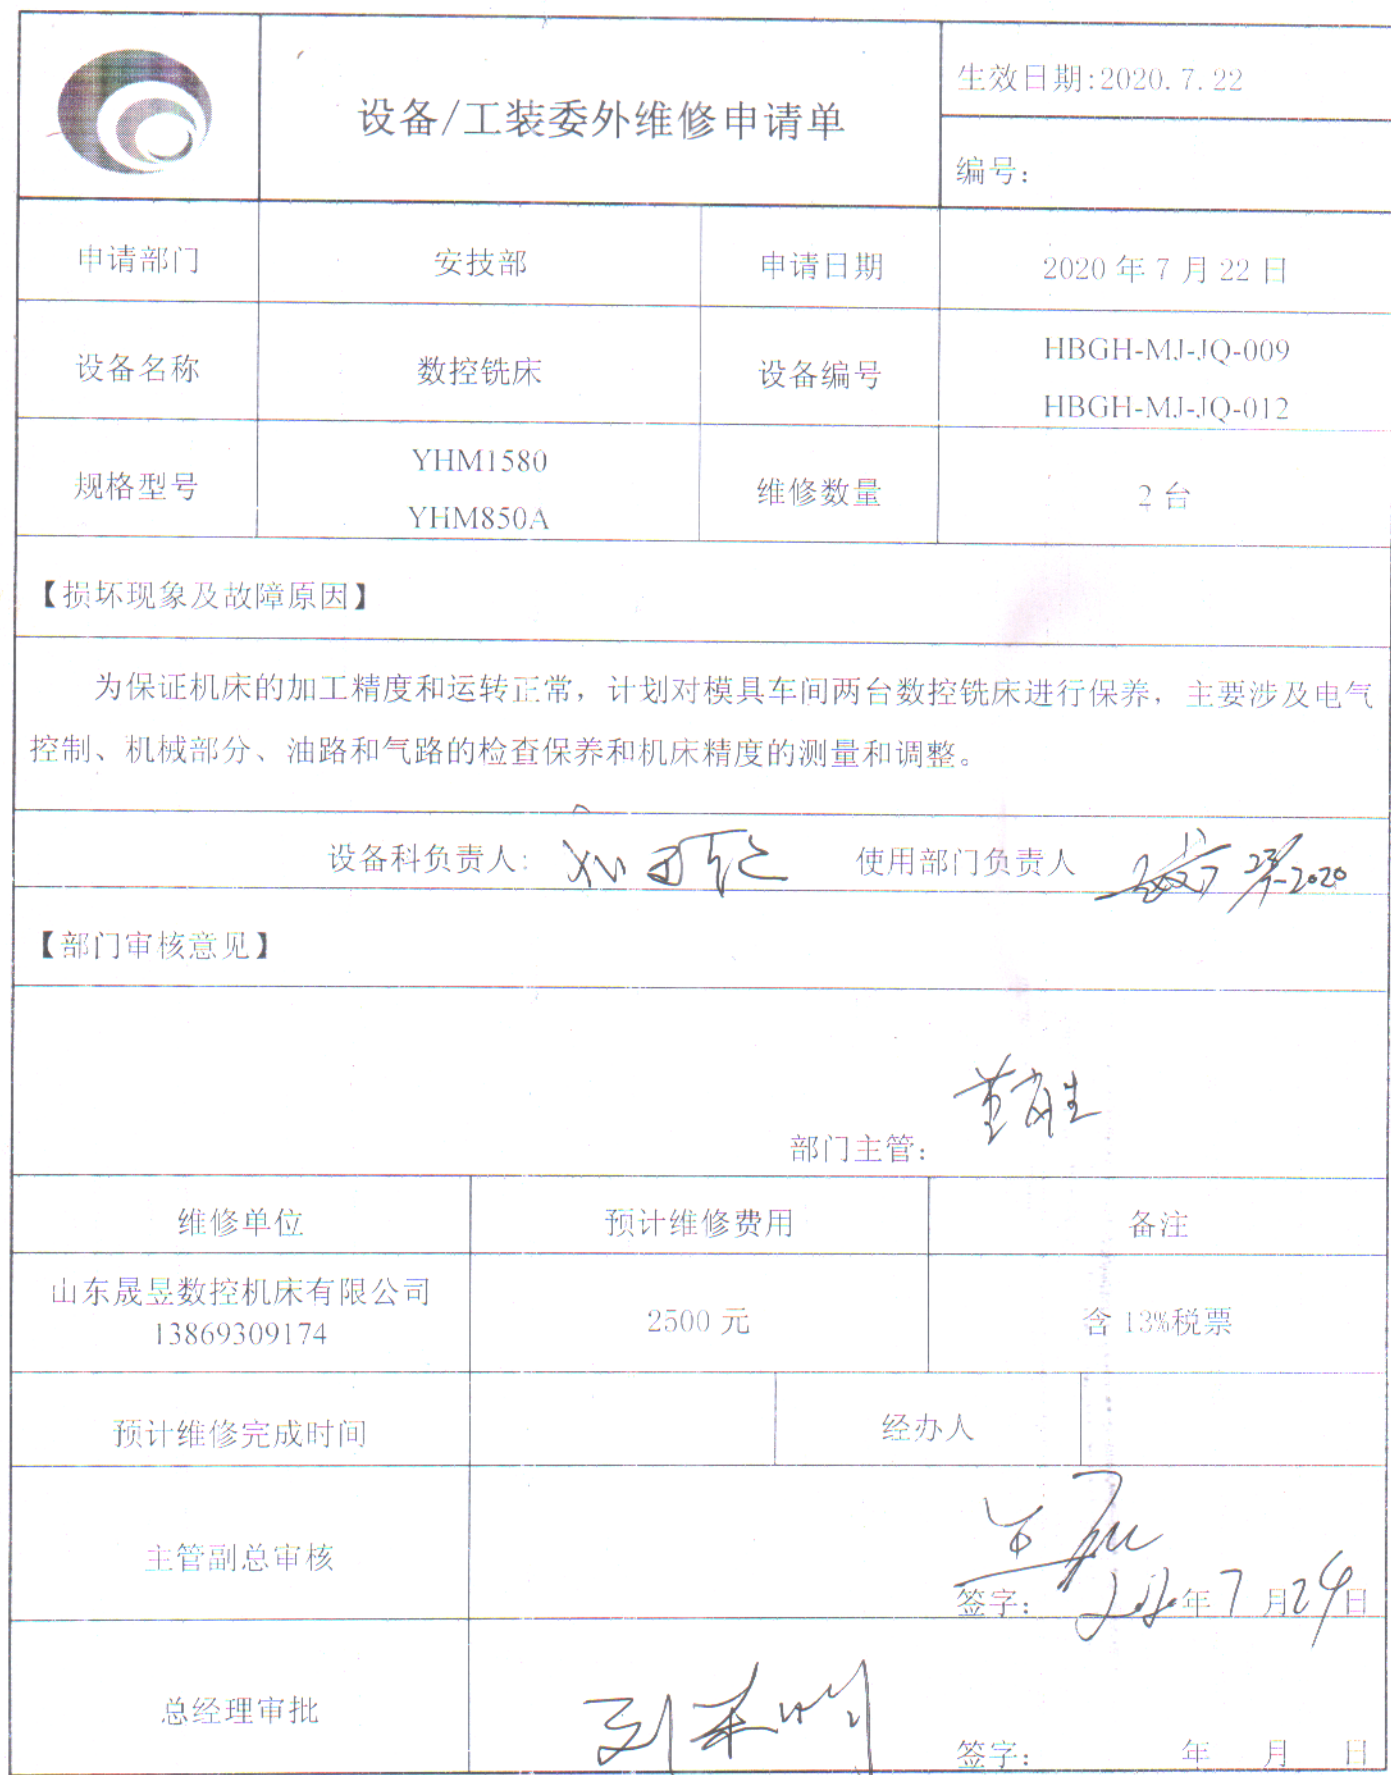 设备/工装委外维修申请单
生效日期:2020.7.22
编号:
申请部门 安技部 申请日期 2020年7月22日
设备名称 数控铣床 设备编号 HBGH-MJ-JQ-009
HBGH-MJ-JQ-012
规格型号 YHM1580 维修数量 2台
YHM850A
【损坏现象及故障原因】
为保证机床的加工精度和运转正常，计划对模具车间两台数控铣床进行保养，主要涉及电气
控制、机械部分、油路和气路的检查保养和机床精度的测量和调整。
设备科负责人: 使用部门负责人 2020
【部门审核意见】
部门主管:
维修单位 预计维修费用 备注
山东晟昱数控机床有限公司
13869309174 2500元 含13%税票
预计维修完成时间 经办人
主管副总审核
签字: 年7月24日
总经理审批
签字: 年 月 日